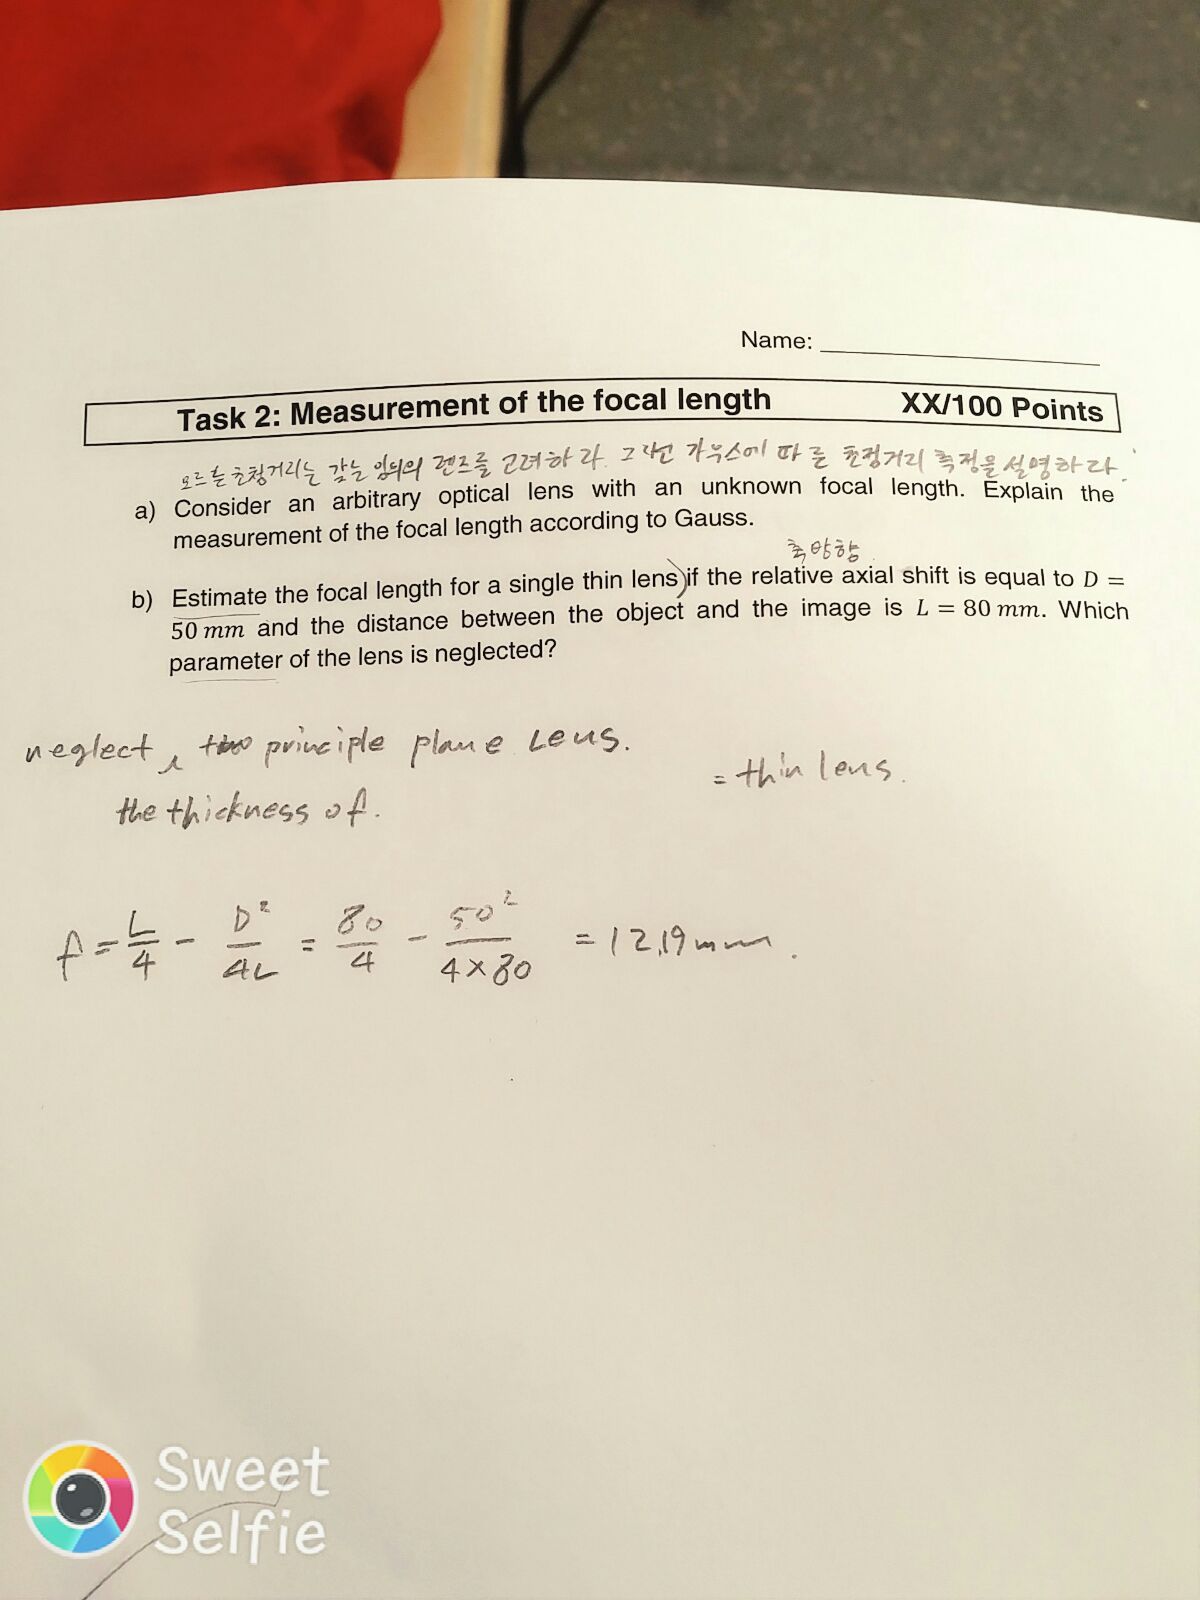 Name:
Task 2: Measurement of the focal length XX/100 Points
모르는 초점거리는 갖는 임의의 렌즈를 고려하라. 그다음 가우스에 따른 초점거리 측정을 설명하라.
a) Consider an arbitrary optical lens with an unknown focal length. Explain the
measurement of the focal length according to Gauss.
축방향
b) Estimate the focal length for a single thin lens) if the relative axial shift is equal to D =
50 mm and the distance between the object and the image is L = 80 mm. Which
parameter of the lens is neglected?
neglect, two principle plane Lens.
= thin lens.
the thickness of.
f = L/4 - D²/4L = 80/4 - 50²/4×80 = 12,19mm.
Sweet
Selfie